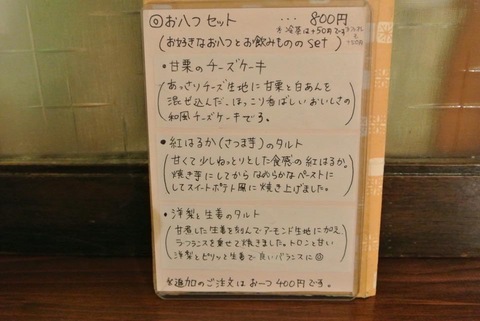 ◎お八つセット ... 800円
※冷茶は+50円です
(お好きなお八つとお飲みもののset)
・甘栗のチーズケーキ
(あっさりチーズ生地に甘栗と白あんを
混ぜ込んだ、ほっこり香ばしいおいしさの
和風チーズケーキです。)
・紅はるか(さつま芋)のタルト
(甘くて少しねっとりとした食感の紅はるか。
焼き芋にしてからなめらかなペーストに
してスイートポテト風に焼き上げました。)
・洋梨と生姜のタルト
(甘煮した生姜を刻んでアーモンド生地に加え
ラ・フランスを乗せて焼きました。トロンと甘い
洋梨とピリッと生姜で良いバランスに◎)
※追加のご注文はお一つ400円です。